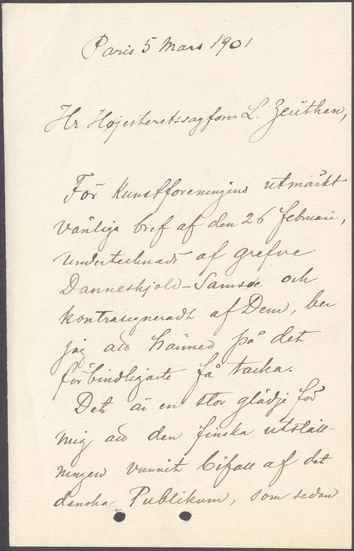 Paris 5 Mars 1901
Hr Højesteretssagförer L. Zeüthen,
För Kunstforeningens utmärkt
vänliga bref af den 26 februari,
undertecknadt af grefve
Danneskjold-Samsøe och
kontrasigneradt af Dem, ber
jag att härmed på det
förbindligaste få tacka.
Det är en stor glädje för
mig att den finska utställ-
ningen vunnit bifall af det
danska Publikum, som sedan